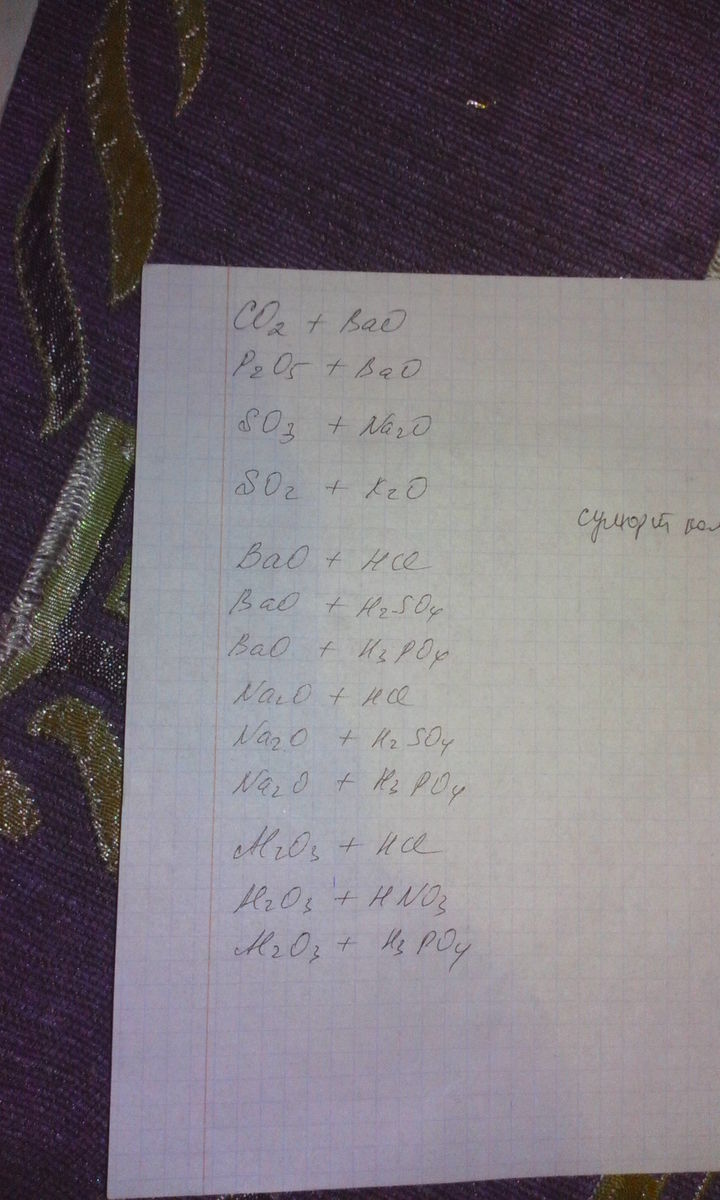 CO₂ + BaO
P₂O₅ + BaO
SO₃ + Na₂O
SO₂ + K₂O
BaO + HCl
BaO + H₂SO₄
BaO + H₃PO₄
Na₂O + HCl
Na₂O + H₂SO₄
Na₂O + H₃PO₄
Al₂O₃ + HCl
Al₂O₃ + HNO₃
Al₂O₃ + H₃PO₄